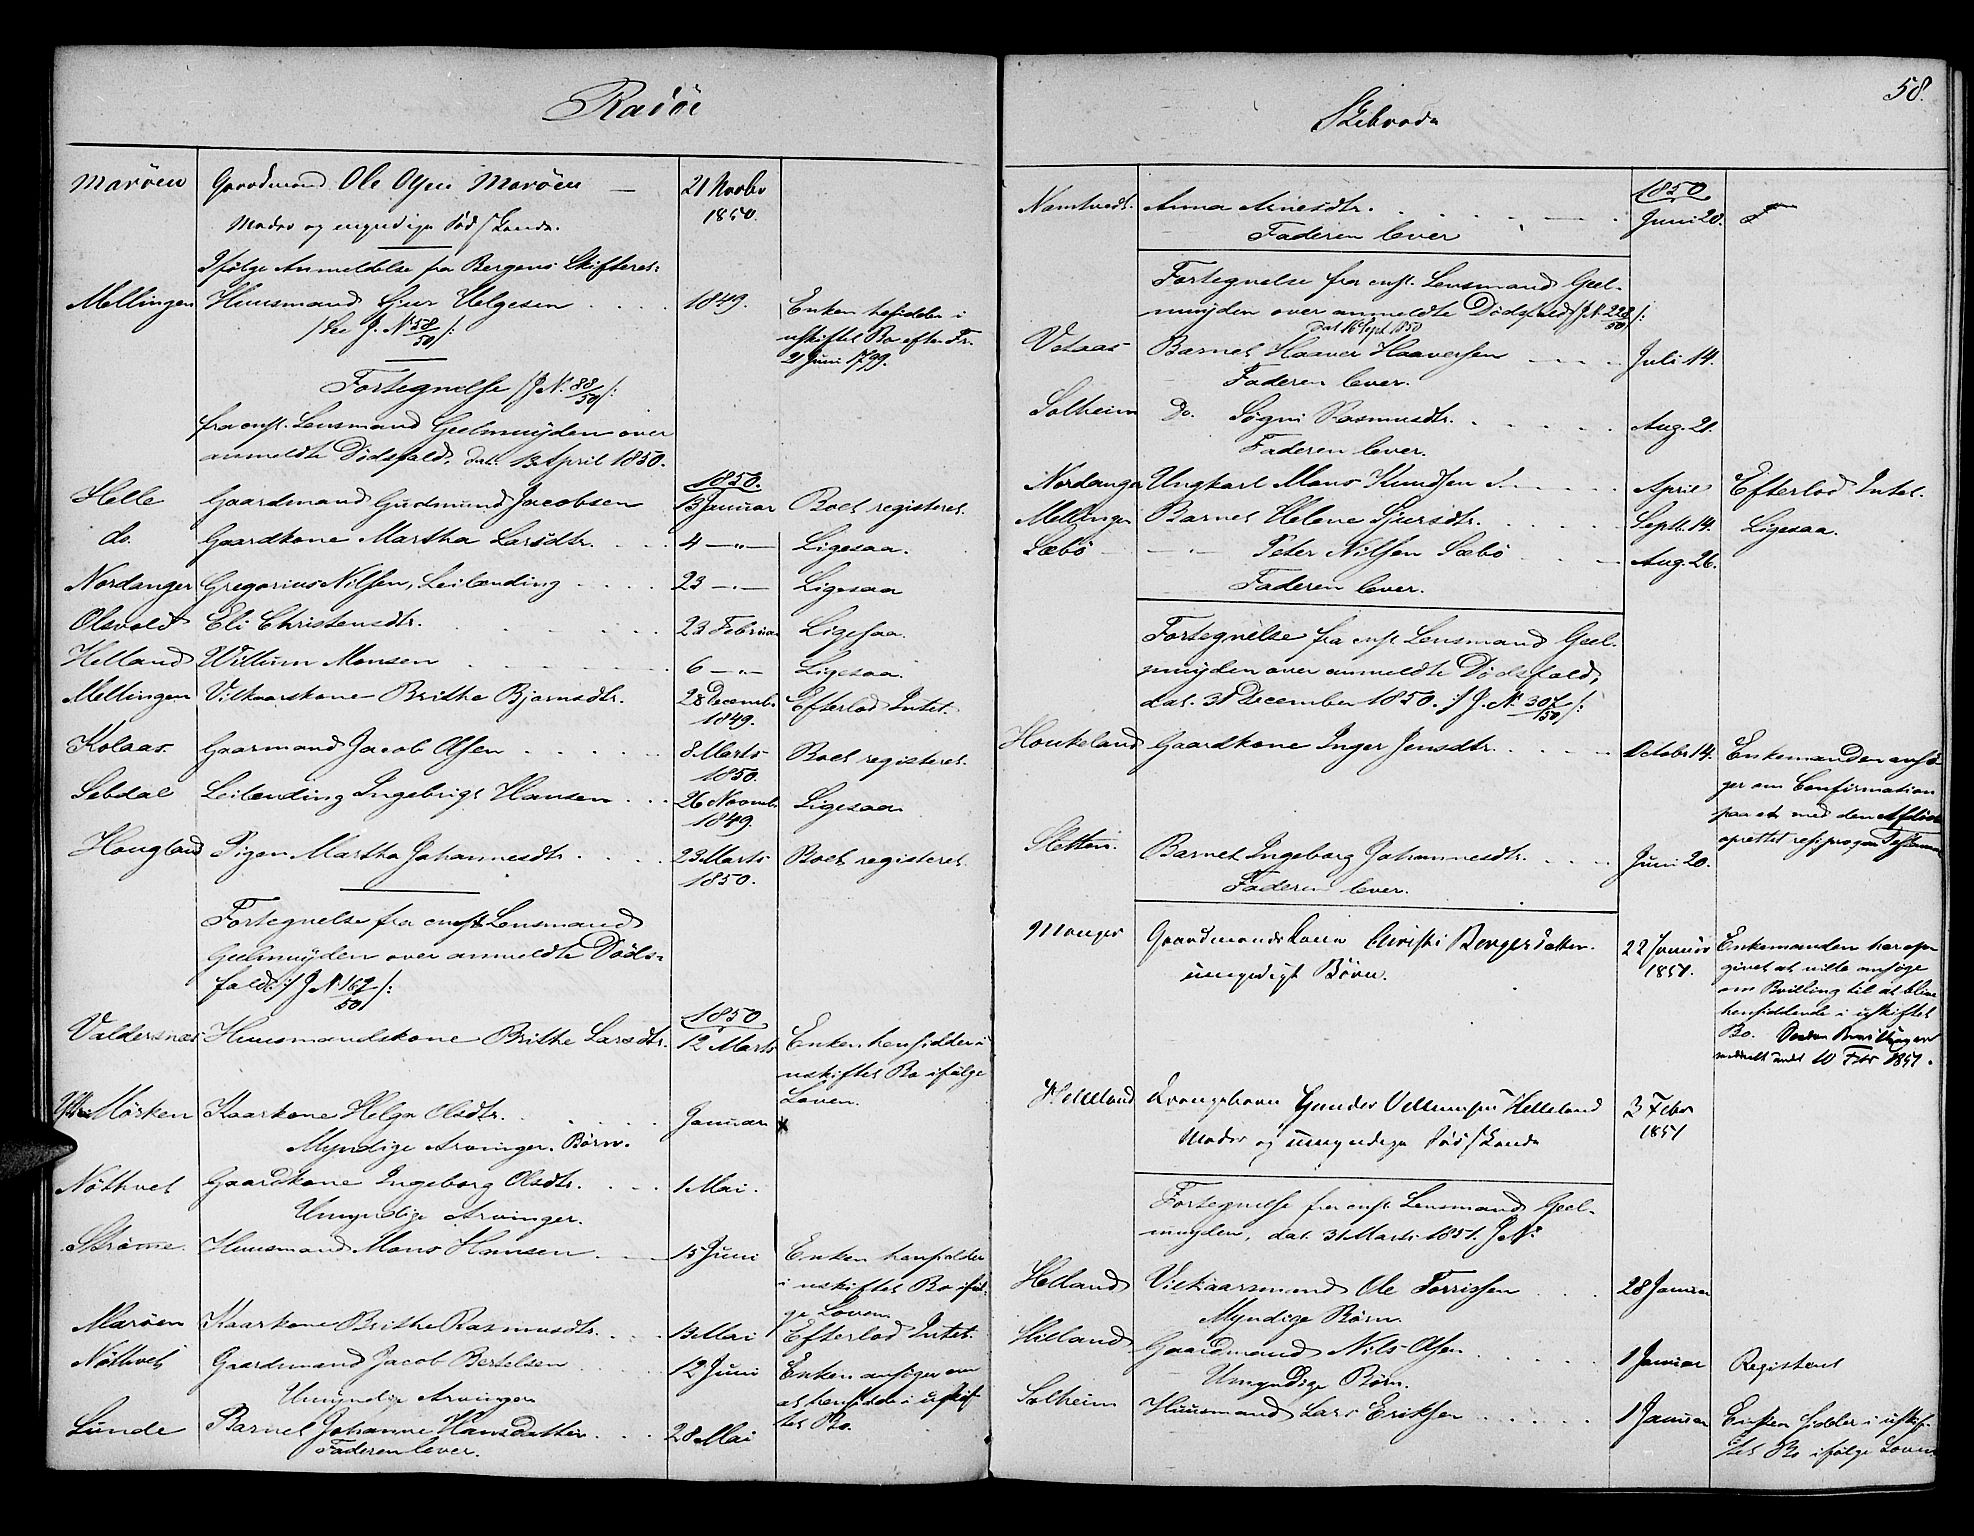 Radöe
Maröen Gaardmand Ole Olsen Maröen — 21 Novbr
Moder og umyndige Sød/kende. 1850.
Ifølge Anmeldelse fra Bergens Skifteret:
Mellingen Huusmand Sjur Helgesen . . . . 1849. Enken hensidder i
/See J. N 58/50/: uskiftet Bo efter Fr.
21 Juni 1799.
Fortegnelse /J N. 88/50/:
fra const. Lensmand Geelmuyden over
anmeldte Dödsfald, dat. 13 April 1850.
1850.
Helle Gaardmand Gudmund Jacobsen 13 Januar Boet registeret.
do. Gaardkone Martha Larsdtr. . . . 4 —"— Ligesaa.
Nordanger Gregorius Nilsen, Leilænding . . . 23 —"— Ligesaa
Olsvold Eli Christensdtr. . . . . . 23 Februar Ligesaa.
Helland Willum Monsen . . . . . 6 —"— Ligesaa.
Mellingen Vilkaarskone Brithe Bjornsdtr. 28 Decembr. Efterlod Intet.
1849.
Kolaas Gaarmand Jacob Olsen . . . . 8 Marts Boet registeret.
1850.
Sebdal Leilænding Ingebrigt Hansen . . . 26 Novemb. Ligesaa
1849.
Hougland Pigen Martha Johannesdtr. . . . 23 Marts Boet registeret.
1850.
Fortegnelse fra const. Lensmand
Geelmuyden over anmeldte Döds-
fald. :/ J N 167/50/:
1850
Valdersnæs Huusmandskone Brithe Larsdtr. 12 Marts Enken hensidder i
uskiftet Bo ifølge
Loven.
Mörken Kaarkone Helga Olsdtr. . . . . Januar x
Myndige Arvinger. Börn.
Nöthvet Gaardkone Ingeborg Olsdtr. . . . 1 Mai.
Umyndige Arvinger.
Ströme. Huusmand Mons Hansen . . . 15 Juni Enken hensidder
i uskiftet Bo iföl-
ge Loven.
Maröen Kaarkone Brithe Rasmusdtr. . . . 13 Mai Efterlod Intet.
Nöthvet Gaardmand Jacob Bertelsen . . . 12 Juni Enken ansöger om
Umyndige Arvinger at hensidde i uskif-
tet Bo.
Lunde Barnet Johanne Hansdatter . . . 28 Mai
Faderen lever.
58.
Skibrede
1850
Namtvedt. Anna Arnesdtr. . . . . . . Juni 20.
Faderen lever
Fortegnelse fra const. Lensmand Geel-
muyden over anmeldte Dödsfald /J. N. 228/50/:
dat 16 Sept 1850
Vetaas Barnet Haaver Haaversen . . . Juli 14.
Faderen lever.
Solheim Do. Sögni Rasmusdtr. . . . . Aug. 21.
Faderen lever.
Nordanger Ungkarl Mons Knudsen . . . . April Efterlod Intet.
Mellingen Barnet Helene Sjursdtr. . . . . Septb. 14. Ligesaa.
Sæbö —"— Peder Nilsen Sæbö . . . Aug. 26.
Faderen lever.
Fortegnelse fra const. Lensmand Geel-
muyden over anmeldte Dödsfald,
dat. 31 December 1850. :/ J. N. 307/50/:
Houkeland Gaardkone Inger Jensdtr. . . . . Octobr 14. Enkemanden ansö-
ger om Confirmation
paa et med den Afdöde
oprettet reciproque Testament
Sletten. Barnet Ingeborg Johannesdtr. . . . Juni 20.
Faderen lever.
Manger Gaardmandskone Christi Bergesdatter. 22 Januar Enkemanden har opn
umyndige Börn. 1851. givet at ville ansöge
om Bevilling til at blive
hensiddende i uskiftet
Bo. Bevillingen
meddelt under 10 Febr 1851.
Helleland Drengebarn Gunder Villumsen Helleland 3 Febr
Moder og umyndige Sød/kende 1851
Fortegnelse fra const. Lensmand Geel-
muyden, dat. 31 Marts 1851. J. N:
Helland Vilkaarsmand Ole Torrissen . . . 28 Januar
Myndige Börn.
Helland Gaardmand Nils Olsen . . . . 1 Januar Registeret
Umyndige Börn.
Solheim Huusmand Lars Eriksen . . . . 1 Januar Enken sidder i uskif-
tet Bo ifølge Loven